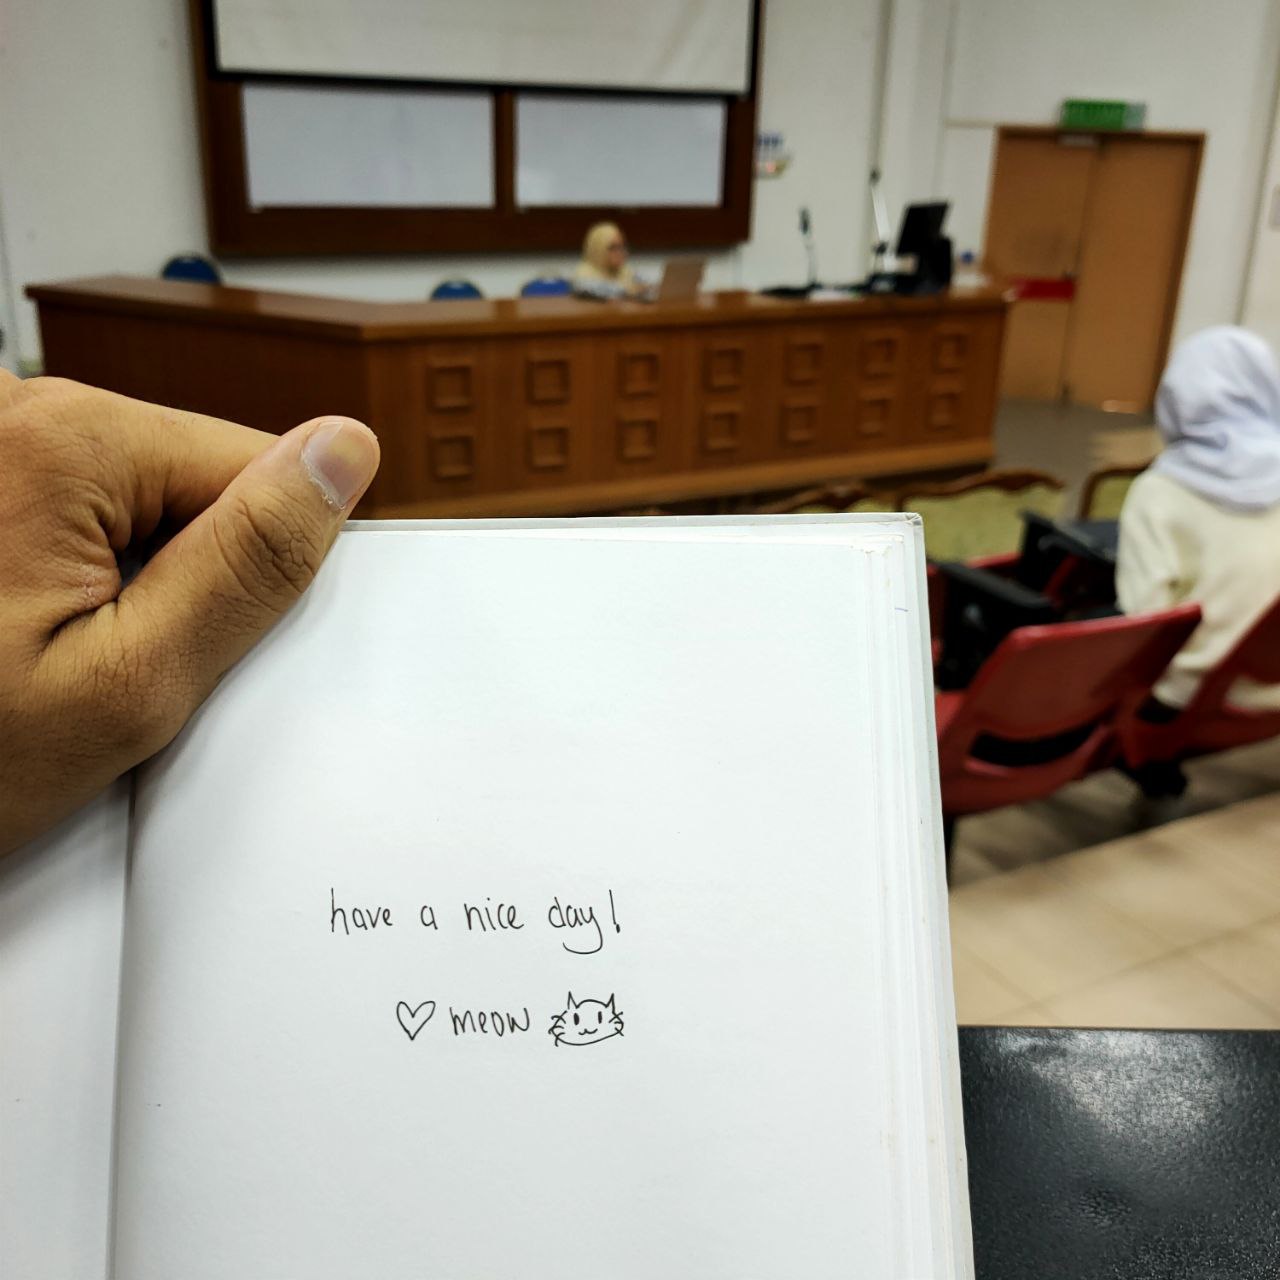 have a nice day!
♡ meow